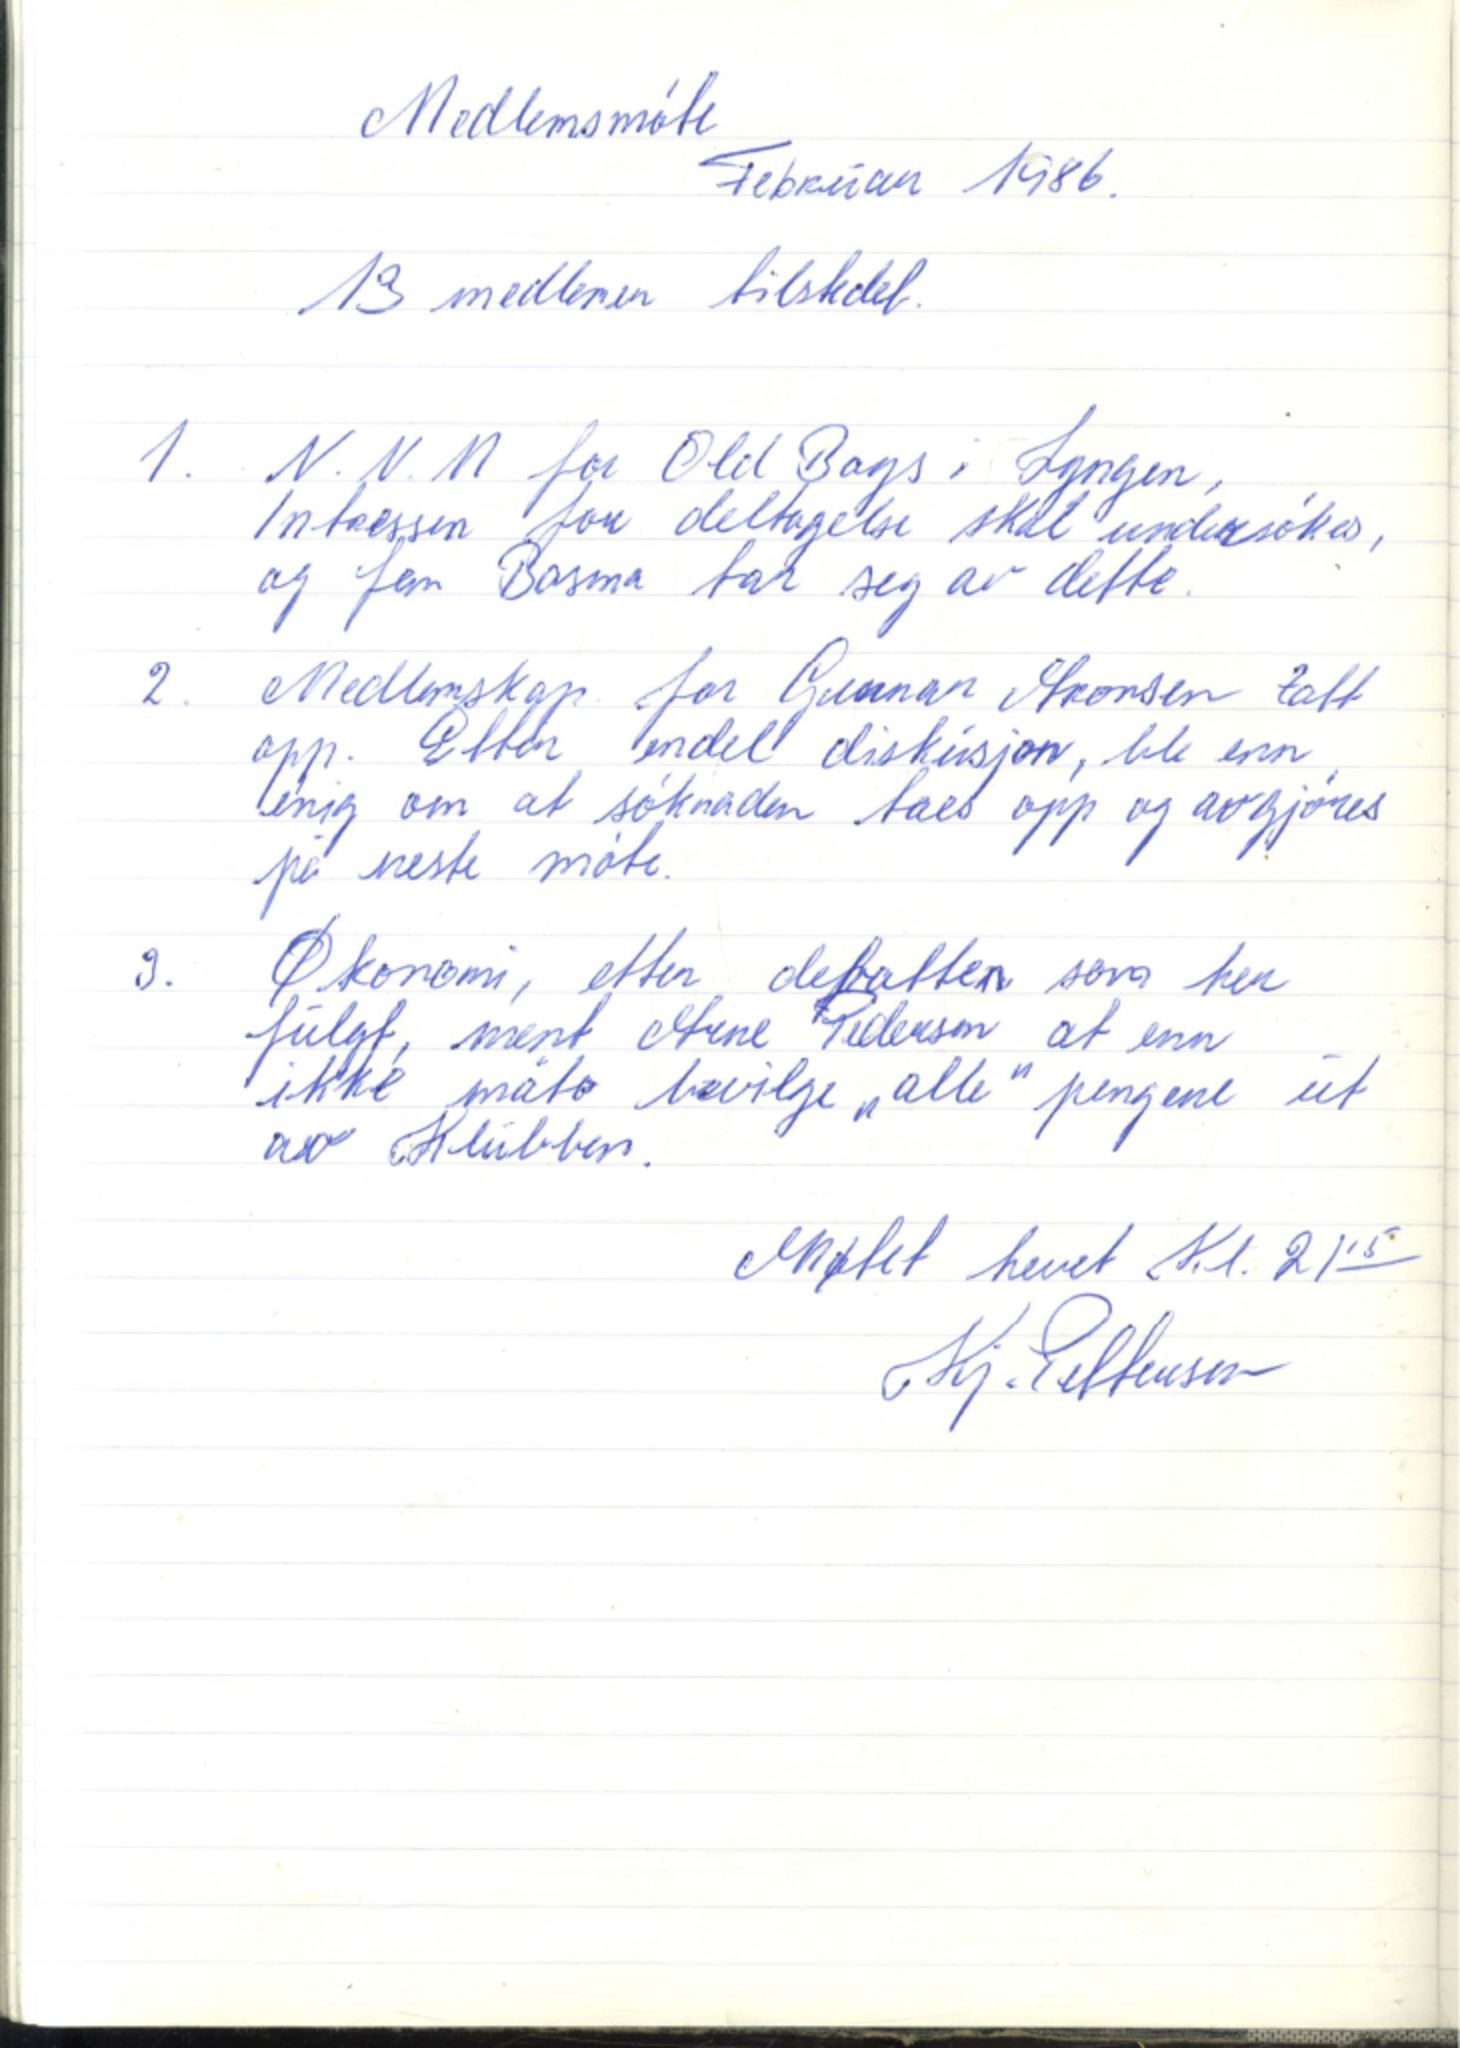 Medlemsmóte
Februar 1986.
13 medlemer tilstedet.
1. N.N.M for Old Boys i Lyngen,
Intressen for deltagelse skal undersókes,
og Jan Basma tar seg av dette.
2. Medlemskap for Gunnar Aronsen tatt
opp. Etter endel diskusjon, ble enn
enig om at sóknaden taes opp og avgjóres
på neste móte.
3. Økonomi, etter debatten som her
fulgt, ment Arne Pedersen at enn
ikke måte bevilge „alle" pengene ut
av Klubben.
Møtet hevet Kl. 21¹⁵
Kj. Pettersen